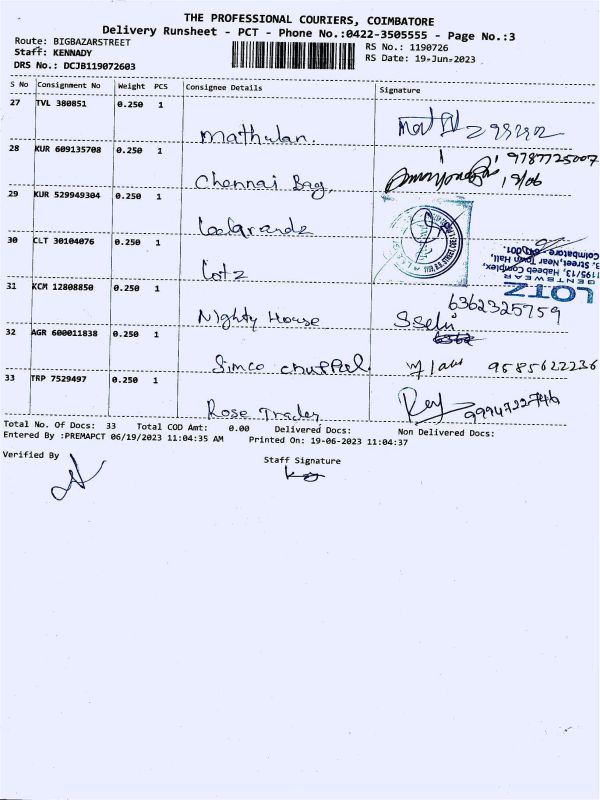 THE PROFESSIONAL COURIERS, COIMBATORE
Delivery Runsheet - PCT - Phone No.:0422-3505555 - Page No.:3
Route: BIGBAZARSTREET
Staff: KENNADY
DRS No.: DCJB119072603
RS No.: 1190726
RS Date: 19-Jun-2023
S No Consignment No Weight PCS Consignee Details Signature
27 TVL 380851 0.250 1
Mathulan.
28 KUR 609135708 0.250 1
Chennai Bag 9787725007
19/06
29 KUR 529949304 0.250 1
30 CLT 30104076 0.250 1
Lotz
LOTZ
GENTSWEAR
1195/13, Habeeb Complex,
3. Street, Near Town Hall,
Coimbatore
31 KCM 12808850 0.250 1
6362325759
Nighty House Sselvi
6362
32 AGR 600011838 0.250 1
Simco 9585622236
33 TRP 7529497 0.250 1
Rose Trader
Total No. Of Docs: 33 Total COD Amt: 0.00 Delivered Docs: Non Delivered Docs:
Entered By :PREMAPCT 06/19/2023 11:04:35 AM Printed On: 19-06-2023 11:04:37
Verified By
Staff Signature